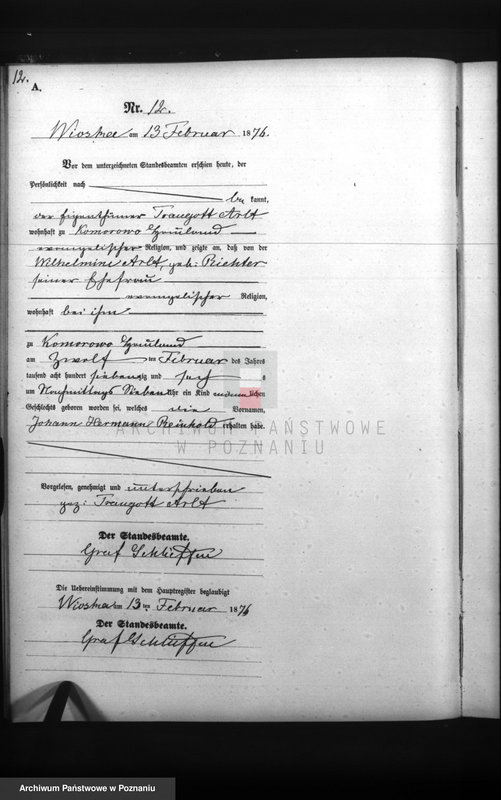 12.
A.
Nr. 12.
Wioska am 13 Februar 1876.
Vor dem unterzeichneten Standesbeamten erschien heute, der
Persönlichkeit nach
be kannt,
der Eigenthümer Traugott Arlt
wohnhaft zu Komorowo Hauland
evangelischer Religion, und zeigte an, daß von der
Wilhelmine Arlt, geb: Richter
seiner Ehefrau
evangelischer Religion,
wohnhaft bei ihm
zu Komorowo Hauland
am Zwölf ten Februar des Jahres
tausend acht hundert siebenzig und sechs
um Nachmittags Sieben Uhr ein Kind männlichen
Geschlechts geboren worden sei, welches die Vornamen,
Johann Hermann Reinhold erhalten habe.
ARCHIWUM PAŃSTWOWE
W POZNANIU
Vorgelesen, genehmigt und unterschrieben
gez: Traugott Arlt
Der Standesbeamte.
Graf Schlieffen
Die Uebereinstimmung mit dem Hauptregister beglaubigt
Wioska am 13 ten Februar 1876
Der Standesbeamte.
Graf Schlieffen
Archiwum Państwowe w Poznaniu